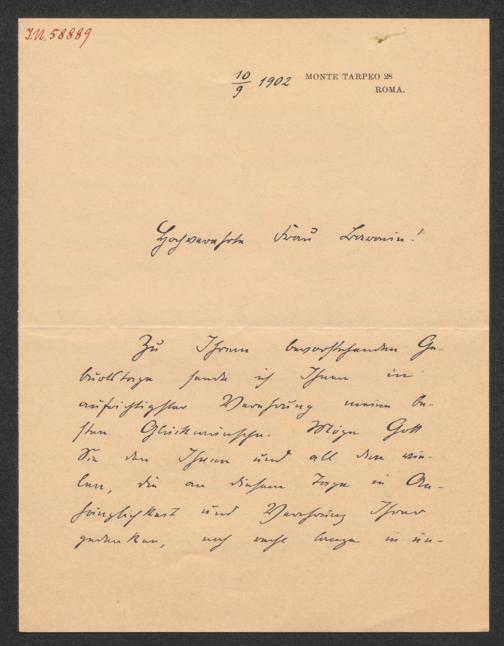 I.N. 58889
10/9 1902 MONTE TARPEO 28
ROMA.
Hochverehrte Frau Baronin!
Zu Ihrem bevorstehenden Ge-
burtstage sende ich Ihnen in
aufrichtigster Verehrung meine be-
sten Glückwünsche. Möge Gott
Sie den Ihnen und all den vie-
len, die an diesem Tage in An-
hänglichkeit und Verehrung Ihrer
gedenken, noch recht lange in un-